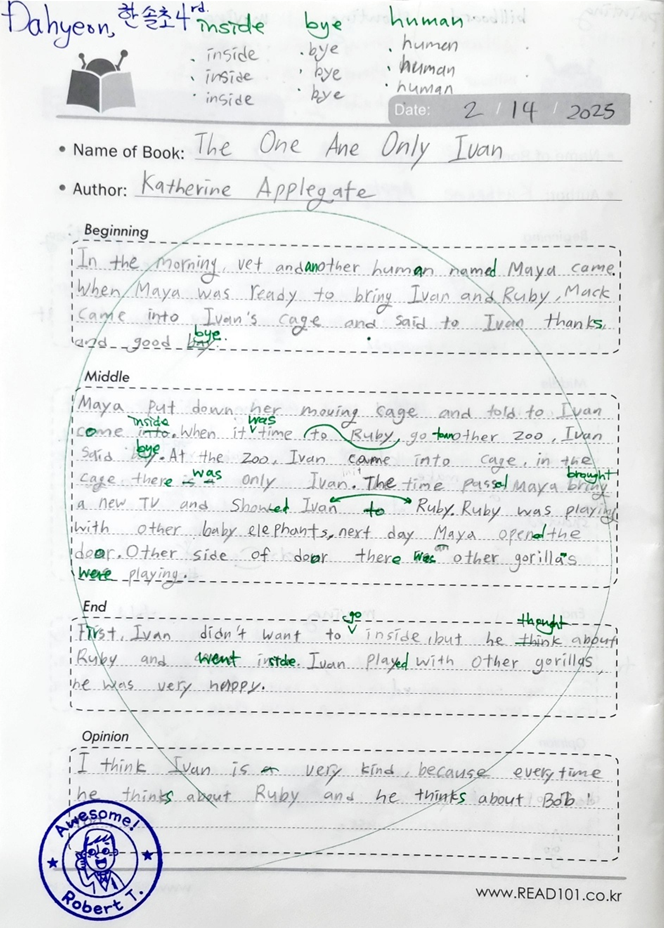 Dahyeon, 한솔초4rd.
inside bye human
· inside · bye · human
· inside · bye · human
· inside · bye · human
Date: 2 / 14 / 2025
• Name of Book: The One Ane Only Ivan
• Author: Katherine Applegate
Beginning
In the morning, vet and another human named Maya came.
When Maya was ready to bring Ivan and Ruby, Mack
came into Ivan's cage and said to Ivan thanks,
bye.
and good
Middle
Maya put down her moving cage and told to Ivan
inside was
come into. When it time to Ruby, go to another zoo, Ivan
bye
said. At the zoo, Ivan came into cage, in the
was brought
cage there is only Ivan. The time passed Maya bring
a new TV and showed Ivan to Ruby. Ruby was playing
with other baby elephants, next day Maya opend the
door. Other side of door there was other gorilla's
were playing.
End
go thought
First, Ivan didn't want to inside, but he think about
Ruby and went inside. Ivan played with other gorillas,
he was very happy.
Opinion
I think Ivan is a very kind, because every time
he thinks about Ruby and he thinks about Bob!
Awesome!
Robert T.
www.READ101.co.kr